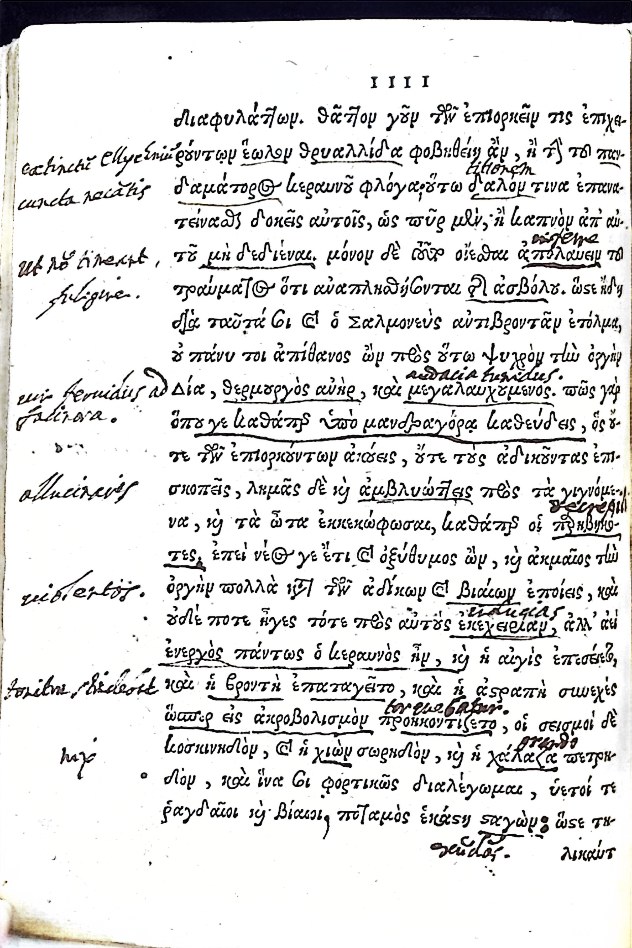 IIII
διαφυλάττων. θᾶττον γοῦν τῶν ἐπιορκεῖν τις ἐπιχει-
extinctū ellychniū
ρούντων ἕωλον θρυαλλίδα φοβηθείη ἂν, ἢ τὴν τοῦ παν-
titionem
δαμάτορος κεραυνοῦ φλόγα, οὕτω δαλόν τινα ἐπανα-
τείνασθαι δοκεῖς αὐτοῖς, ὡς πῦρ μὲν, ἢ καπνὸν ἀπ' αὐ-
ut nō timeant
τοῦ μὴ δεδιέναι. μόνον δὲ οἴεσθαι ἀπολαύειν τοῦ
fuligine.
τραύματος ὅτι ἀναπλησθήσονται τῆς ἀσβόλου. ὥστε ἤδη
διὰ ταῦτά σοι καὶ ὁ Σαλμονεὺς ἀντιβροντᾶν ἐτόλμα,
οὐ πάνυ τοι ἀπίθανος ὢν πρὸς οὕτω ψυχρὸν τὴν ὀργὴν
uir feruidus ad
facinora.
Δία, θερμουργὸς ἀνὴρ, καὶ μεγαλαυχούμενος. πῶς γὰρ
ὅπου γε καθάπερ ὑπὸ μανδραγόρᾳ καθεύδεις, ὃς οὔ-
τε τῶν ἐπιορκούντων ἀκούεις, οὔτε τοὺς ἀδικοῦντας ἐπι-
allucinaris
σκοπεῖς, λημᾶς δὲ καὶ ἀμβλυώττεις πρὸς τὰ γιγνόμε-
να, καὶ τὰ ὦτα ἐκκεκώφωσαι, καθάπερ οἱ παρηβηκό-
τες. ἐπεὶ νέος γε ἔτι καὶ ὀξύθυμος ὢν, καὶ ἀκμαῖος τὴν
uiolentos.
ὀργὴν πολλὰ κατὰ τῶν ἀδίκων καὶ βιαίων ἐποίεις, καὶ
inducias
οὐδέ ποτε ἦγες τότε πρὸς αὐτοὺς ἐκεχειρίαν, ἀλλ' ἀεὶ
ἐνεργὸς πάντως ὁ κεραυνὸς ἦν, καὶ ἡ αἰγὶς ἐπεσείετο,
καὶ ἡ βροντὴ ἐπαταγεῖτο, καὶ ἡ ἀστραπὴ συνεχὲς
torquebatur.
ὥσπερ εἰς ἀκροβολισμὸν προηκοντίζετο, οἱ σεισμοὶ δὲ
nix
grando
κοσκινηδὸν, καὶ ἡ χιὼν σωρηδὸν, καὶ ἡ χάλαζα πετρη-
δὸν, καὶ ἵνα σοι φορτικῶς διαλέγωμαι, ὑετοί τε
ῥαγδαῖοι καὶ βίαιοι, ποταμὸς ἑκάστη σταγὼν: ὥστε τη-
λικαύτ